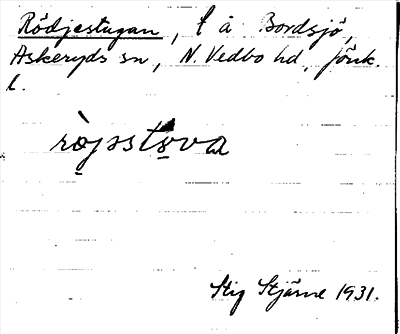 Rödjestugan, t å Bordsjö,
Askeryds sn, N. Vedbo hd, Jönk.
l.
rò̱jssto̱va
Stig Stjärne 1931.